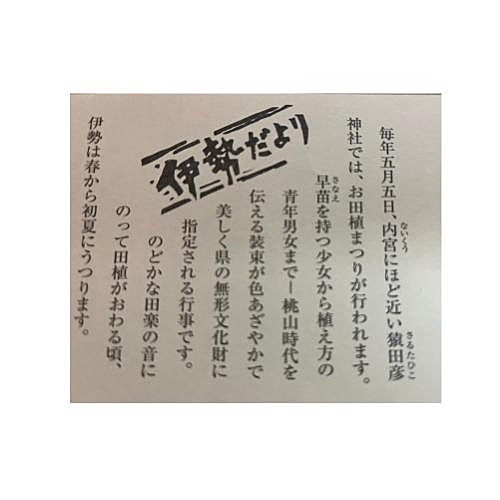 伊勢だより
毎年五月五日、内宮にほど近い猿田彦
神社では、お田植まつりが行われます。
早苗を持つ少女から植え方の
青年男女まで―桃山時代を
伝える装束が色あざやかで
美しく県の無形文化財に
指定される行事です。
のどかな田楽の音に
のって田植がおわる頃、
伊勢は春から初夏にうつります。
ないくう
さるたひこ
さなえ